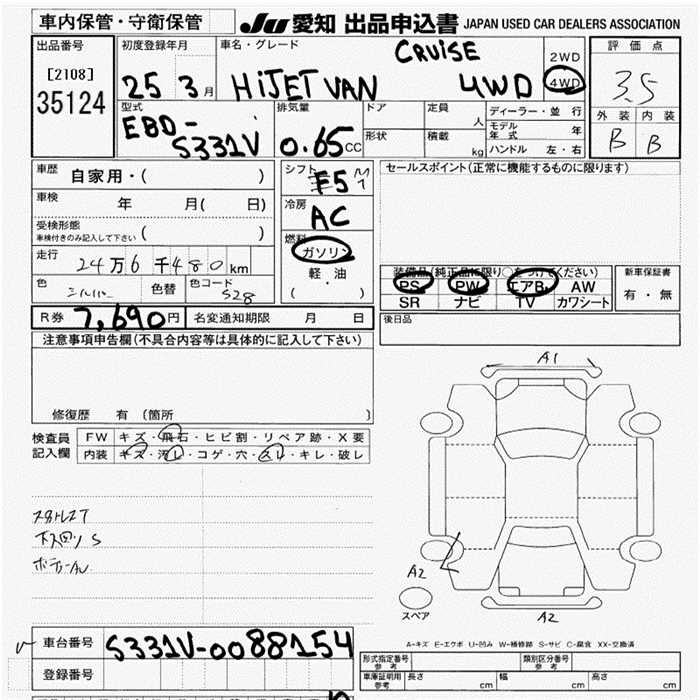 車内保管・守衛保管
JU 愛知 出品申込書 JAPAN USED CAR DEALERS ASSOCIATION
出品番号
[2108]
35124
初度登録年月
25 3 月
車名・グレード
CRUISE
HiJET VAN 4WD
2WD
4WD
評価点
3.5
外装 内装
B B
型式
EBD-
S331V
排気量
0.65 CC
ドア
定員
人
形状
積載
kg
ディーラー・並行
モデル年式 年
ハンドル 左・右
車歴
自家用・( )
車検
年 月( 日)
受検形態
車検付きのみ記入して下さい ( )
走行
24万6千480km
色
シルバー
色替
色コード
S28
シフト
F5 MT
冷房
AC
燃料
ガソリン
軽・油
( )
セールスポイント(正常に機能するものに限ります)
装備品(純正品に限り○をつけてください)
PS PW エアB AW
SR ナビ TV カワシート
新車保証書
有・無
R券 7,690円 名変通知期限 月 日
後日品
注意事項申告欄(不具合内容等は具体的に記入して下さい)
修復歴 有(箇所 )
検査員
記入欄
FW キズ・飛石・ヒビ割・リペア跡・X要
内装 キズ・汚レ・コゲ・穴・スレ・キレ・破レ
A1
A2
A2
スペア
A-キズ E-エクボ U-凹み W-補修跡 S-サビ C-腐食 XX-交換済
車台番号 S331V-0088154
登録番号
形式指定番号
参考
類別区分番号
参考
車庫証明用
参考
長さ cm 幅 cm 高さ cm